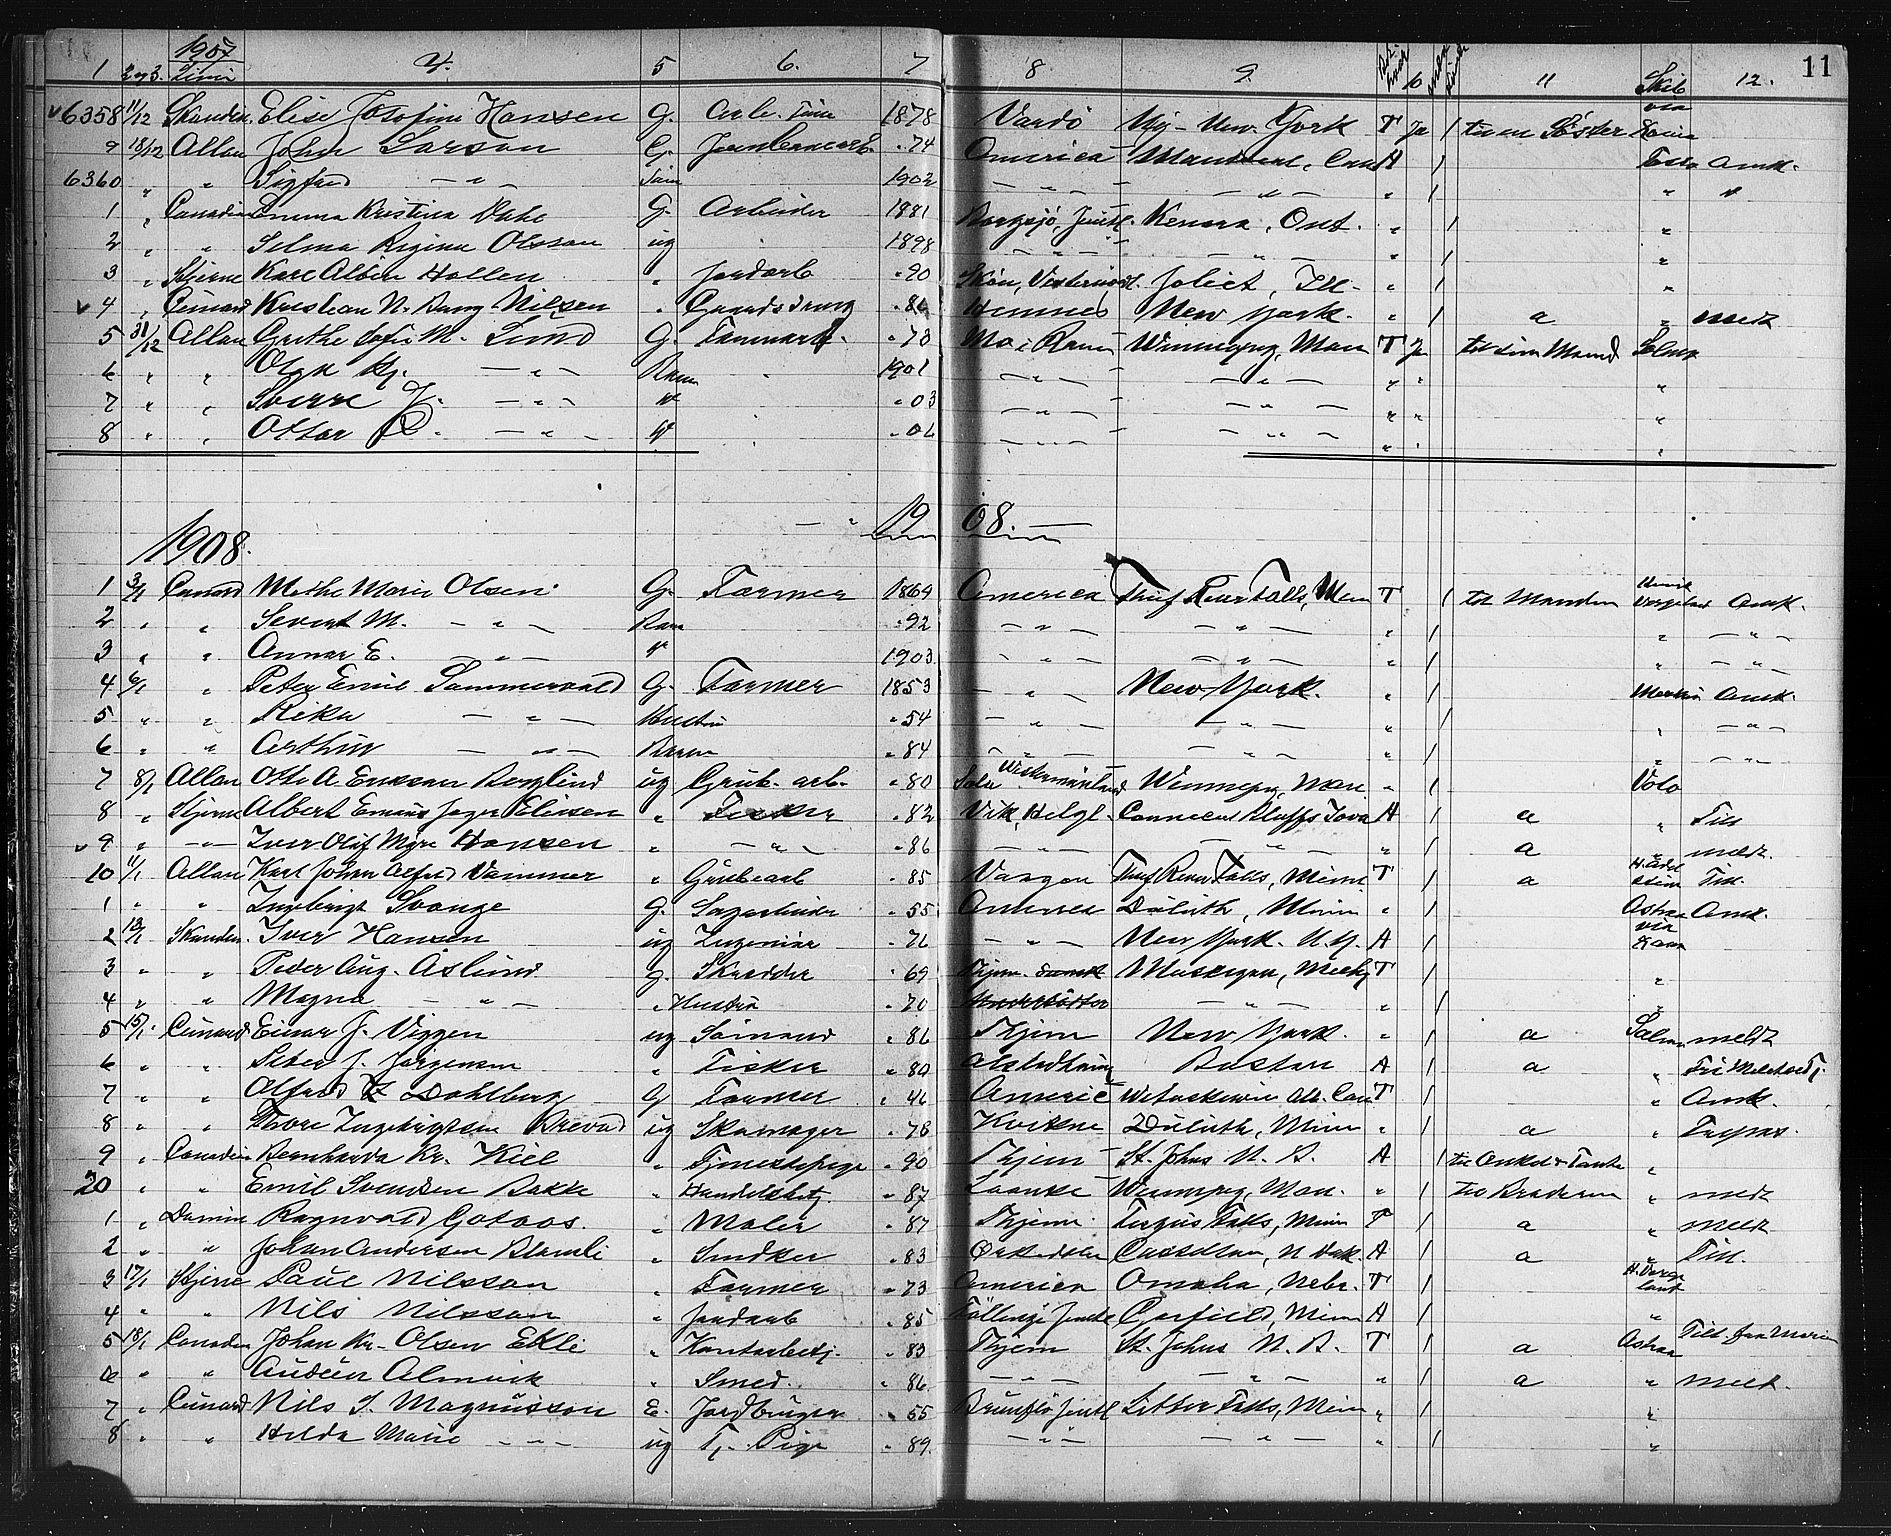 1907 11
1 2 og 3. Linie 4. 5 6. 7 8 9. 10 11 Skib 12.
6358 11/12 Skandin. Elise Josefine Hansen G. Arb. 1878 Vardö Ny-New York T Ja 1 til en Söster via
9 18/12 Allan John Larson G. Jernbanearb. " 74 America Montreal, Can A 1 Amk.
6360 " " Sigfred — " — Sön 1902 — " — — " — " 1 " "
1 " Canadien Emma Kristina Dahl G. Arbeider 1881 Borgsjö, Jemtl. Kenora, Ont. " 1 "
2 " " Selma Regina Olsson ug " 1898 — " — — " — " 1 "
3 " Stjerne Karl Albin Hallen " Jordarb " 90 Skön, Joliet, Ill. " 1 "
4 " Cunard Kristian N. Bang Nilsen " Gaardsdreng " 86 Hemnes New York. " 1 a " meldt
5 31/12 Allan Grethe Sofie M. Lund G. " 78 Mo i Ranen Winnepeg, Man T Ja til sin Mand
6 " " Olga Kj. — " — Barn " 1901 — " — — " — " " "
7 " " Sverre J. — " — " " 03 — " — — " — " " "
8 " " Ottar P. — " — " " 06 — " — — " — " " "
— " — 19 08. —
1908.
1 3/1 Cunard Methe Marie Olsen G. Farmer 1869 America Thief River Falls, Minn T 1 til Manden Henrik Vergeland Amk.
2 " " Severt M. — " — Barn " 92 — " — — " — " 1 " — " —
3 " " Annar E. — " — " 1903 — " — — " — " 1 " — " —
4 6/1 " Peter Emil Sommervold G. Farmer 1853 — " — New York. " 1 Amk.
5 " " Rika — " — Hustru " 54 — " — — " — " 1 " — " —
6 " " Arthur — " — Barn " 84 — " — — " — " 1 " — " —
7 8/1 Allan Otto A. Erikson Berglind ug Grub. arb. " 80 Sala Westermanland Winnepeg, Man. " 1
8 " Stjerne Albert Enius Jager Eliesen " Fisker " 82 Vik, Helgl. Council Bluffs Iova A 1 a " Till
9 " — " — Iver Olaf Myre Hansen " — " — " 86 — " — — " — " 1 a " meldt.
10 11/1 Allan Karl Johan Alfred Vammer " Grubearb " 85 Thief River Falls, Minn T 1 a Till.
1 " " Ingebrigt Svange G. Sagarbeider " 55 America Duluth, Minn " 1 Astrea Amk.
2 13/1 Skandin. Iver Hansen ug Ingeniör " 76 — " — New York. N.Y. A 1 via
3 " " Peder Aug. Aslund g. Skrædder " 69 Thjem. Muskegon, Mich T 1 "
4 " " Magna — " — " Hustru " 70 — " — " 1 "
5 15/1 Cunard Einar J. Viggen ug Sömand " 86 Thjem New York. " 1 a Salmo meldt
6 " " Peder J. Jörgensen " Fisker " 80 Boston A 1 a "
7 " " Alfred Dahlberg G Farmer " 46 America Wetaskiwin Alb. Can T 1 " Amk.
8 " " Thore Ingebrigtsen Brevad ug Skomager " 78 Kvikne Duluth, Minn " 1 a "
9 " Canadien Bernharda Kr. Kiel " Tjenestepige " 90 Thjem St. Johns N. B. A 1 til Onkel & Tante "
20 " " Emil Svendsen Bakke " Handelsbetj. " 87 Laanke Winnepeg, Man. " 1 til Broderen " meldt
1 " Domin Ragnvald Gotaas. " Maler " 87 Thjem. Fergus Falls, Minn T 1 a " meldt
2 " " Johan Andersen Blamli " Snedker " 83 Orkedalen Casselton, N. Dak. A 1 a " Till.
3 17/1 Stjerne Paul Nilsson " Farmer " 73 America Omaha, Nebr. T 1 H. Vergeland
4 " " Nils Nilsson " Jordarb " 85 Föllinge Jemtl Garfield, Minn A 1 "
5 18/1 Canadien Johan Kr. Olsen Ekli " Kontorbetj. " 83 Thjem St. Johns N. B. T 1 a Astrea
6 " " Audun Almvik " Smed. " 86 — " — — " — " 1 a " meldt.
7 " Cunard Nils J. Magnusson E. Jordbruger " 55 Brunflo Jemtl Little Falls, Minn " 1 "
8 " " Hilda Marie — " — ug Tj. Pige " 89 — " — — " — " 1 "